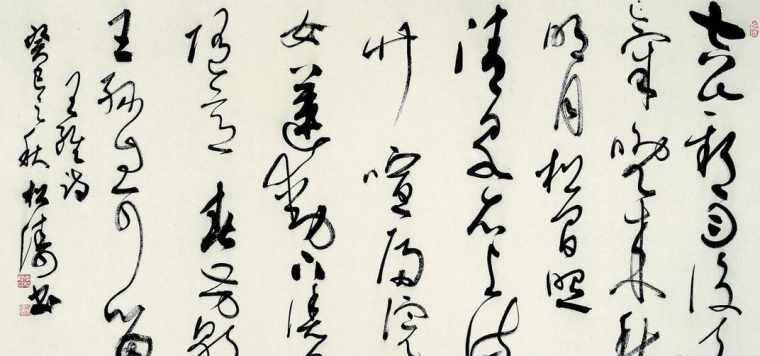 空山新雨後天
氣晚來秋
明月松間照
清泉石上流
竹喧歸浣
女蓮動下漁
隨意春芳歇
王孫自可留
王維詩
癸巳之秋松濤書